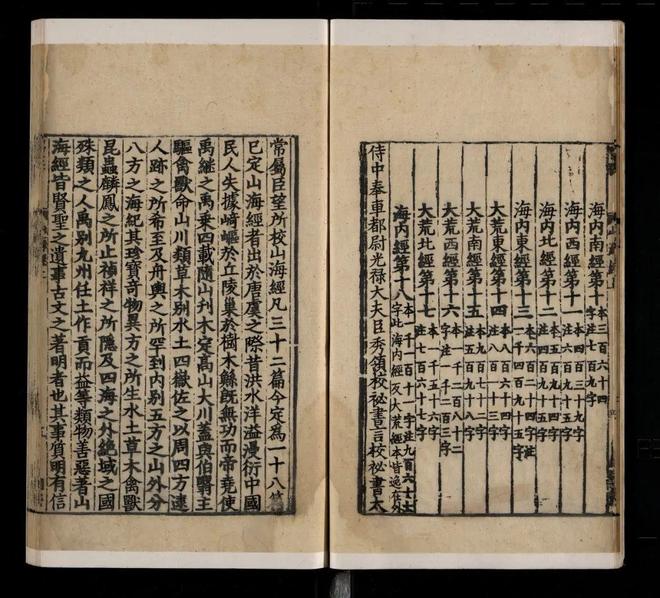 海內南經第十 本三百六十四字注七百九字
海內西經第十一 本四百三十九字注六百九十五字
海內北經第十二 本五百九十四字注四百九十五字
海內東經第十三 本六百二十四字注千四百九十五字
大荒東經第十四 本八百六十四字注八百十三字
大荒南經第十五 本九百七十二字注五百九十八字
大荒西經第十六 本一千二百八十二字注一千二百三字
大荒北經第十七 本一千五十六字注七百六十七字
海內經第十八 本一千一百十一字注九百六十七字此海內經及大荒經本皆逸在外
侍中奉車都尉光祿大夫臣秀領校祕書言校祕書太
常屬臣望所校山海經凡三十二篇今定爲一十八篇
已定山海經者出於唐虞之際昔洪水洋溢漫衍中國
民人失據崎嶇於丘陵巢於樹木鯀既無功而帝堯使
禹繼之禹乘四載隨山刋木定高山大川蓋與伯翳主
驅禽獸命山川類草木別水土四嶽佐之以周四方逮
人跡之所希至及舟輿之所罕到內別五方之山外分
八方之海紀其珍寶奇物異方之所生水土草木禽獸
昆蟲麟鳳之所止禎祥之所隱及四海之外絶域之國
殊類之人禹別九州任土作貢而益等類物善惡著山
海經皆賢聖之遺事古文之著明者也其事質明有信